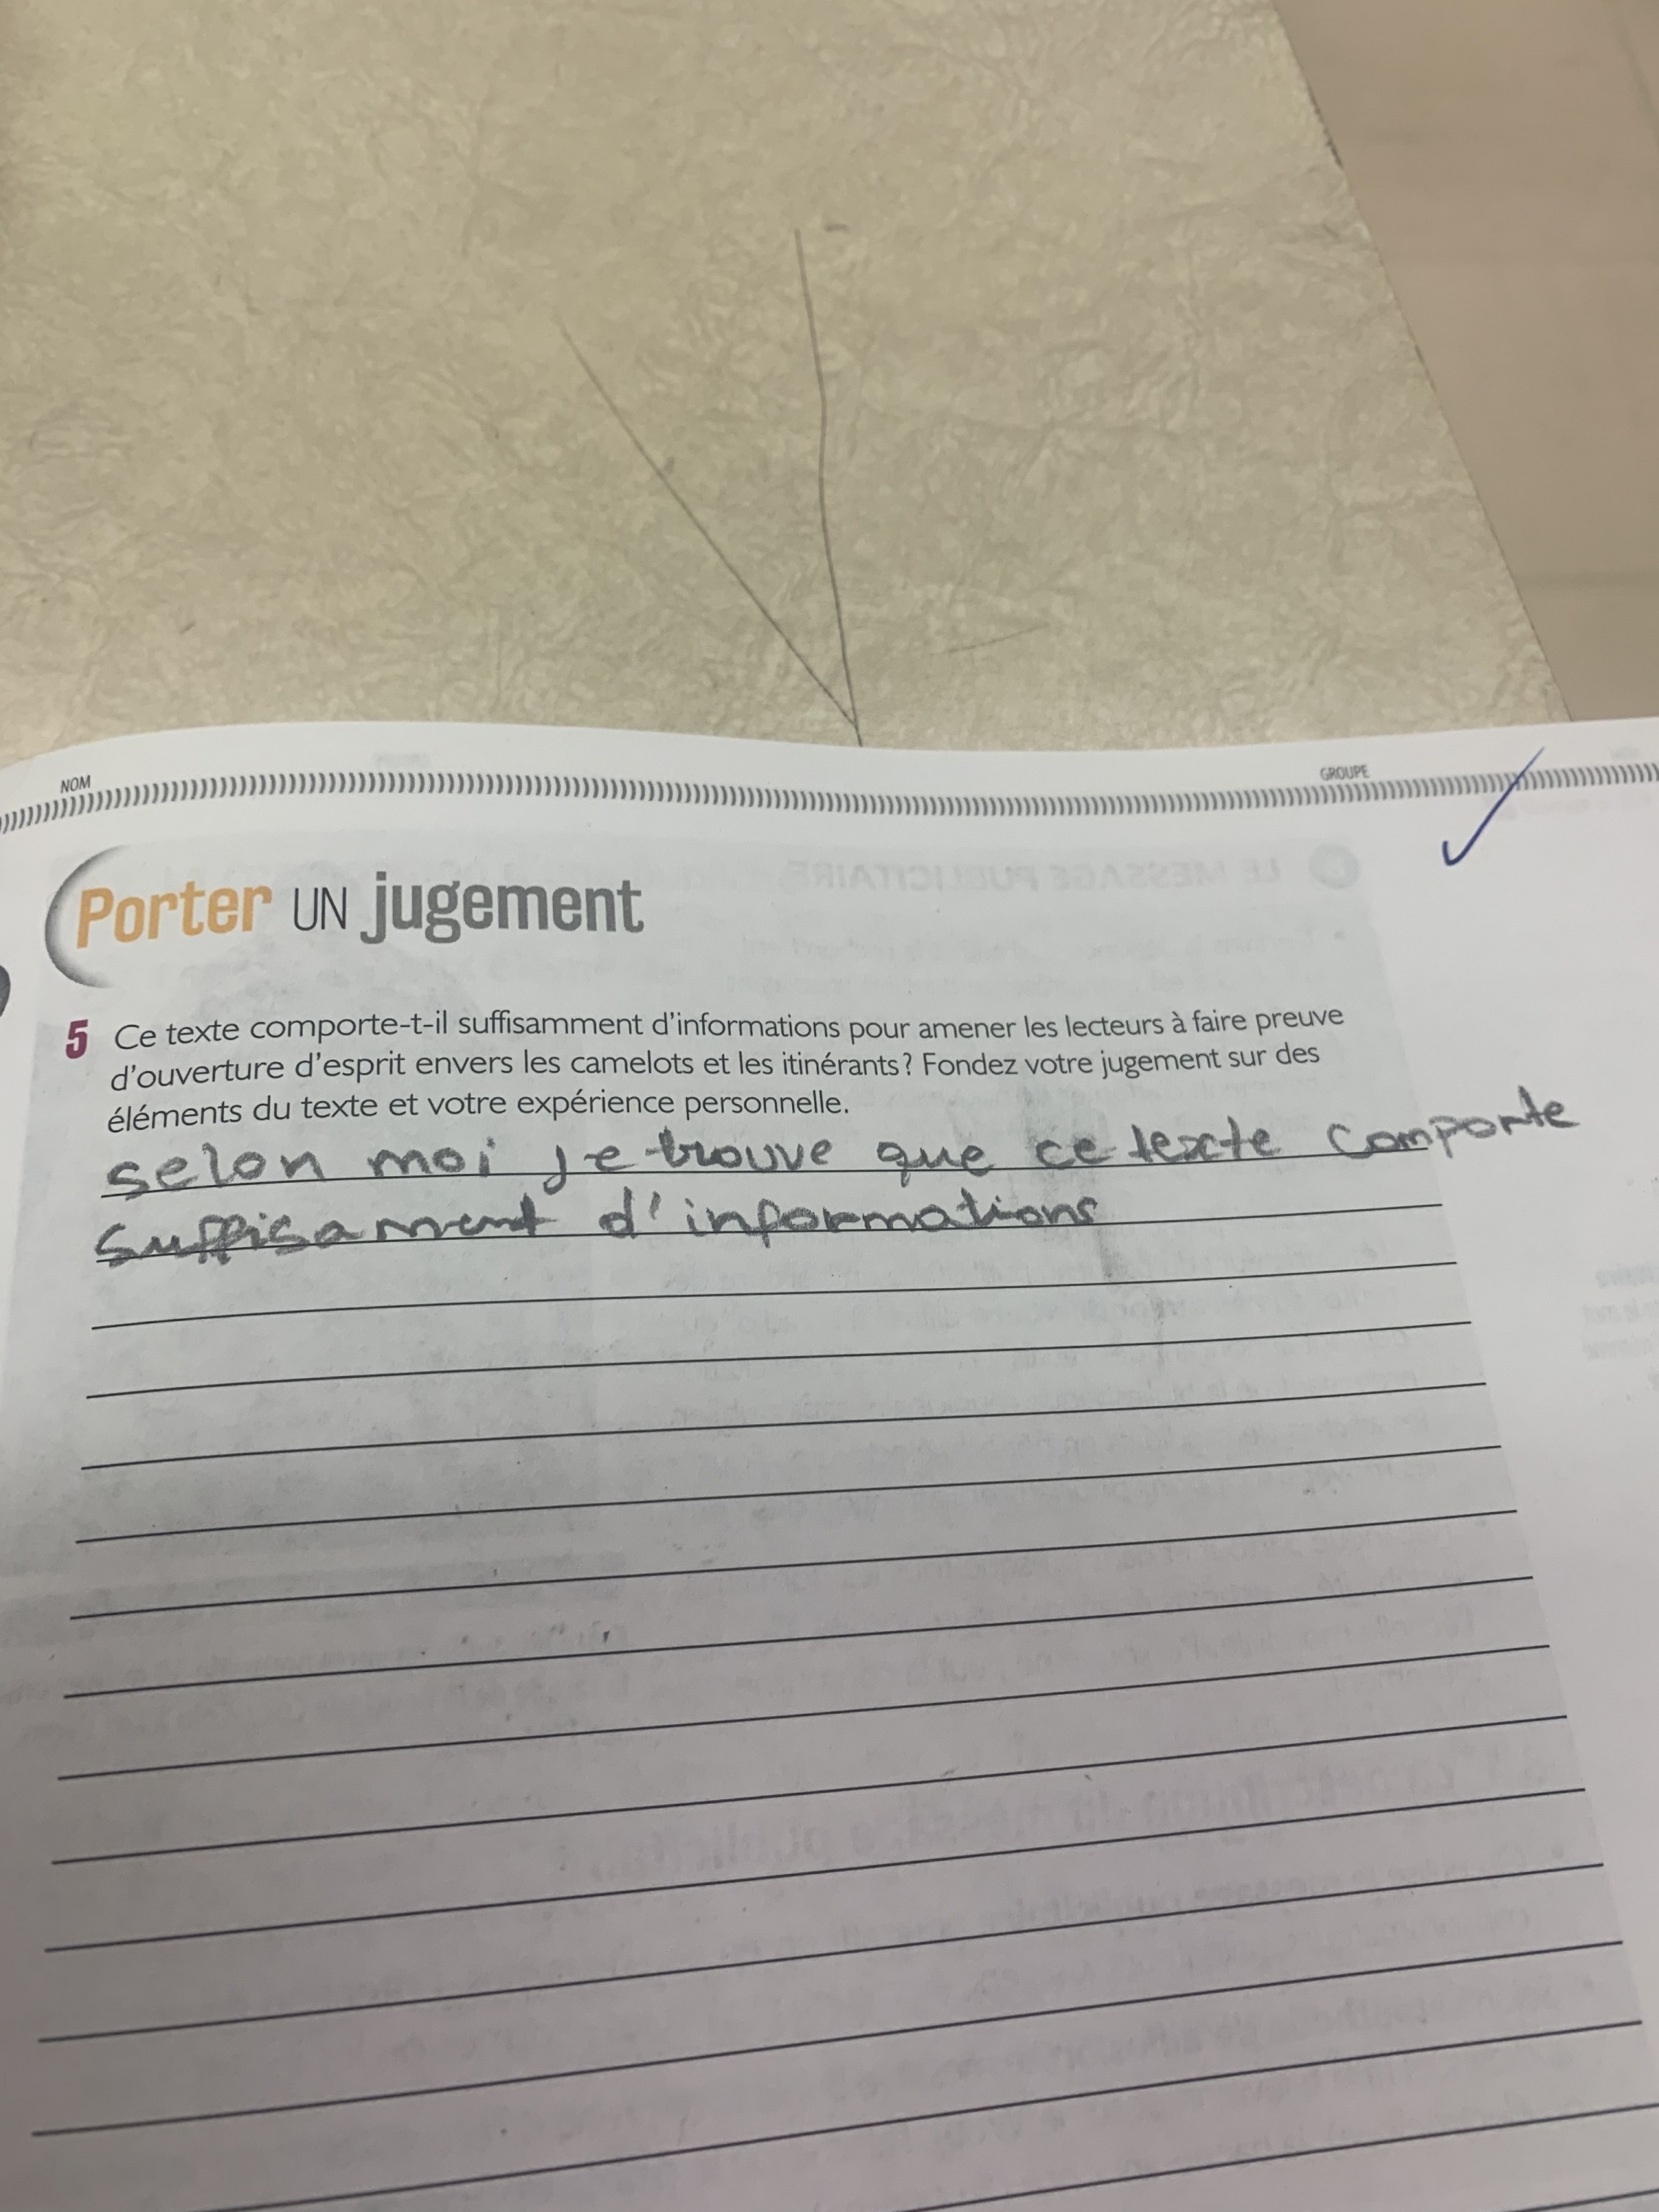 NOM
GROUPE
Porter UN jugement
5 Ce texte comporte-t-il suffisamment d'informations pour amener les lecteurs à faire preuve
d'ouverture d'esprit envers les camelots et les itinérants? Fondez votre jugement sur des
éléments du texte et votre expérience personnelle.
selon moi je trouve que ce texte comporte
suffisament d'informations